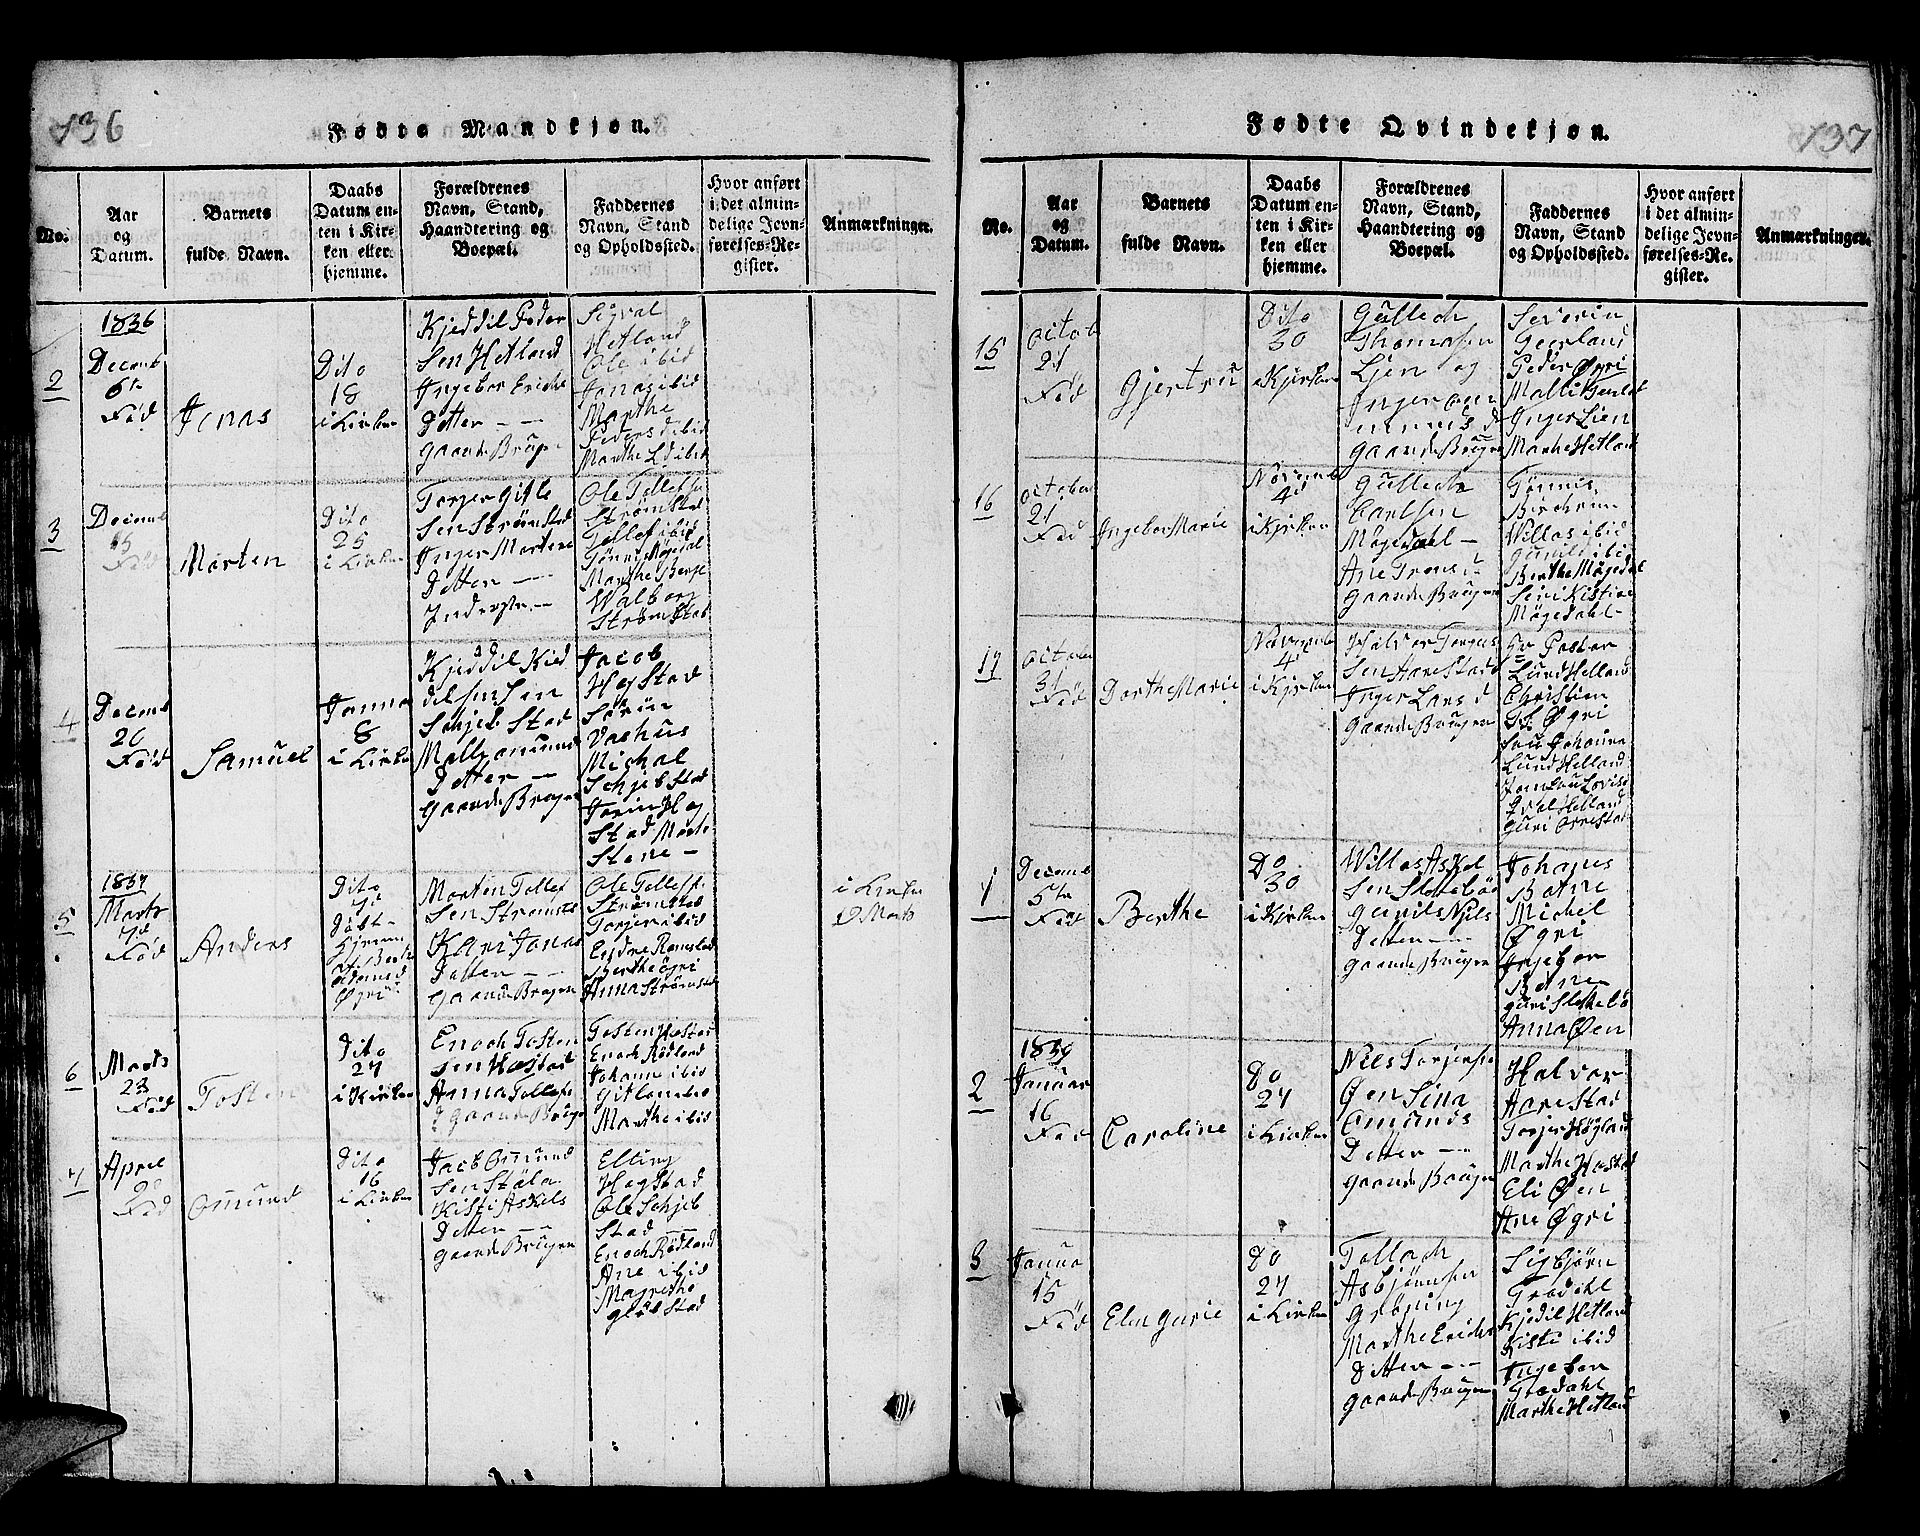 136
Fødte Mandkjøn.
No.
Aar
og
Datum.
Barnets
fulde Navn.
Daabs
Datum en-
ten i Kir-
ken eller
hjemme.
Forældrenes
Navn, Stand,
Haandtering og
Boepæl.
Faddernes
Navn, Stand
og Opholdssted.
Hvor anført
i det almin-
delige Jevn-
førelses-Re-
gister.
Anmærkninger.
2
1836
Decemb
6te
Fød
Jonas
Dito
18
i Kirken
Kjeddil Peder
Sen Hetland
Ingebor Erichs
Detter - -
Gaarde Brüger
Sigval
Hetland
Ole ibid
Jonas ibid
Marthe
Peders d ibid
Marthe L d ibid
3
Decemb
15
Fød
Morten
Dito
25
i Kirken
Torger Gitle
Sen Strømstad
Inger Martens
Detter - -
Inderste -
Ole Tollefsen
Strømstad
Tollef ibid
Tønnis Møgedal
Marthe Berge
Walborg
Strømstad
4
Decemb
26
Fød
Samuel
Janua
8
i Kirken
Kjeddil Kied
dilsen
Schjeb Stad
Mally omund
Detter -
Gaarde Bruger
Jacob
Hegstad
Sørin
Vashus
Michal
Schjebstad
Torin Heg
Stad Marte
Stene -
5
1837
Marts
7d
Fød
Anders
Dito
7d
Døbt
Hjemme
af
Øgri
Morten Tollef
Sen Strømsta
Kari Jonas
Datter - -
Gaarde Bruger
Ole Tollefs
Strømstad
Torjer ibid
Endre Ramstad
Berthe Øgri
Anna Strømstad
i Kirken
19 Marts
6
Marts
23
Fød
Tosten
Dito
27
i Kirken
Enoch Tosten
sen Hæstad
Anna Tollefs
d Gaarde Brüger
Tosten Hæstad
Enoch Rødland
Johanne ibid
Marthe ibid
7
April
Fød
Omund
Dito
16
i Kirken
Jacob Omund
Sen Støla
Kisti Askels
Detter - -
Gaarde Brüger
Elling
Hegstad
Ole Schjeb
Stad -
Enoch Rødland
Ane ibid
Magrethe
Gløbstad
137
Fødte Qvindekjøn.
No.
Aar
og
Datum.
Barnets
fulde Navn.
Daabs
Datum en-
ten i Kir-
ken eller
hjemme.
Forældrenes
Navn, Stand,
Haandtering og
Boepæl.
Faddernes
Navn, Stand
og Opholdssted.
Hvor anført
i det almin-
delige Jevn-
førelses-Re-
gister.
Anmærkninger.
15
October
21
Fød
Gjertru
Dito
30
i Kjirken
Güllech
Thomasen
Ljen og
Inger
Gaarde Brüger
Severin
Geerland
Peder Øgri
Malli
Inger Lien
Marthe Hetland
16
October
21
Fød
Ingebor Marie
Novemb
4d
i Kjirken
Güllech
Carlsen
Møgedahl -
Ane Trons d
Gaarde Brüger
Tønnis
Birchrem
Willas ibid
Gunild ibid
Berthe Møgedal
Seri Kistine
Møgedahl -
17
October
31
Fød
Dorthe Marie
Novemb
4d
i Kjirken
Halvor Torgers
Sen Aarestad
Inger Lars d
Gaarde Brüger
Hr Pastor
Lund Helland
Christien
Øgri
Johanna
Lund Helland
Jomfru Lovise
Helland
Guri Orrestad
1
Decemb
5te
Fød
Berthe
Do
30
i Kjirken
Willas Askel
Sen Slettebøe
Gunils Niels
Detter -
Gaarde Brüger
Johanes
Botne
Michel
Øgri
Ingebor
Botne
Guri Slettebø
Anna Øen
2
1839
Januar
16
Fød
Caroline
Do
27
i Kirken
Niels Torjersen
Øen Sina
Omunds
Detter -
Gaarde Brüger
Halvor
Aarestad
Torjer Høgland
Marthe Hæstad
Eli Øen
Ane Øgri
3
Janua
15
Fød
Elen Gurie
Do
27
i Kirken
Tollach
Asbjørnsen
Grøning
Marthe Erichs
Ditter - -
Gaarde Brüger
Sigbjørn
Kjedil Hetland
Kisti ibid
Ingebor
Marthe Hetland